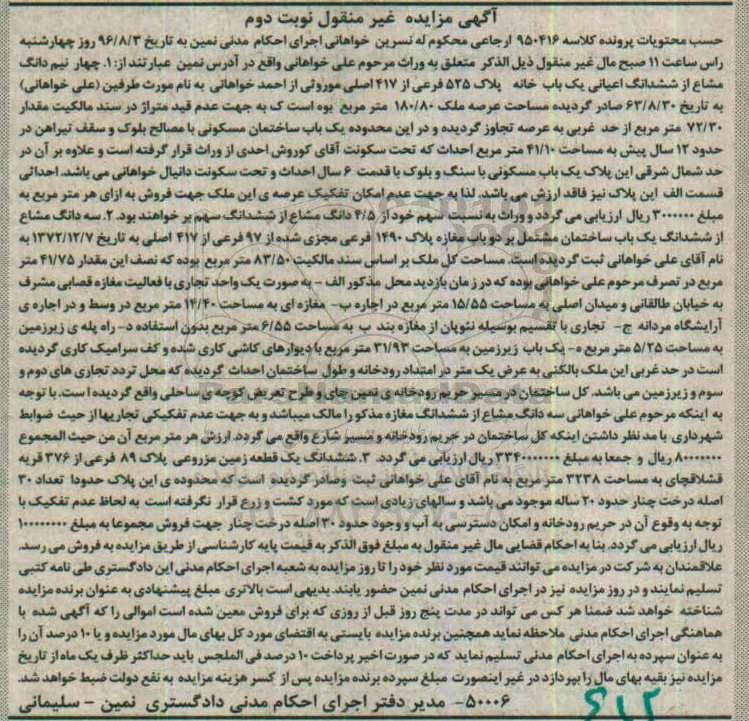 آگهی مزایده غیر منقول نوبت دوم
حسب محتویات پرونده کلاسه ۹۵۰۴۱۶ ارجاعی محکوم له نسرین خواهانی اجرای احکام مدنی نمین به تاریخ ۹۶/۸/۳ روز چهارشنبه
راس ساعت ۱۱ صبح مال غیر منقول ذیل الذکر متعلق به وراث مرحوم علی خواهانی واقع در آدرس نمین عبارتند از: ۱. چهار نیم دانگ
مشاع از ششدانگ اعیانی یک باب خانه پلاک ۵۲۵ فرعی از ۴۱۷ اصلی موروثی از احمد خواهانی به نام مورث طرفین (علی خواهانی)
به تاریخ ۶۳/۸/۳۰ صادر گردیده مساحت عرصه ملک ۱۸۰/۸۰ متر مربع بوه است ک به جهت عدم قید متراژ در سند مالکیت مقدار
۷۲/۳۰ متر مربع از حد غربی به عرصه تجاوز گردیده و در این محدوده یک باب ساختمان مسکونی با مصالح بلوک و سقف تیراهن در
حدود ۱۲ سال پیش به مساحت ۴۱/۱۰ متر مربع احداث که تحت سکونت آقای کوروش احدی از وراث قرار گرفته است و علاوه بر آن در
حد شمال شرقی این پلاک یک باب مسکونی با سنگ و بلوک با قدمت ۶ سال احداث و تحت سکونت دانیال خواهانی می باشد. احداثی
قسمت الف این پلاک نیز فاقد ارزش می باشد. لذا به جهت عدم امکان تفکیک عرصه ی این ملک جهت فروش به ازای هر متر مربع به
مبلغ ۳۰۰۰۰۰۰ ریال ارزیابی می گردد و وراث به نسبت سهم خود از ۴/۵ دانگ مشاع از ششدانگ سهم بر خواهند بود. ۲. سه دانگ مشاع
از ششدانگ یک باب ساختمان مشتمل بر دو باب مغازه پلاک ۱۴۹۰ فرعی مجزی شده از ۹۷ فرعی از ۴۱۷ اصلی به تاریخ ۱۳۷۲/۱۲/۷ به
نام آقای علی خواهانی ثبت گردیده است. مساحت کل ملک بر اساس سند مالکیت ۸۳/۵۰ متر مربع بوده که نصف این مقدار ۴۱/۷۵ متر
مربع در تصرف مرحوم علی خواهانی بوده که در زمان بازدید محل مذکور الف - به صورت یک واحد تجاری با فعالیت مغازه قصابی مشرف
به خیابان طالقانی و میدان اصلی به مساحت ۱۵/۵۵ متر مربع در اجاره ب- مغازه ای به مساحت ۱۴/۴۰ متر مربع در وسط و در اجاره ی
آرایشگاه مردانه ج- تجاری با تقسیم بوسیله نئوپان از مغازه بند ب به مساحت ۶/۵۵ متر مربع بدون استفاده د- راه پله ی زیرزمین
به مساحت ۵/۲۵ متر مربع ه- یک باب زیرزمین به مساحت ۳۱/۹۳ متر مربع با دیوارهای کاشی کاری شده و کف سرامیک کاری گردیده
است در حد غربی این ملک بالکنی به عرض یک متر در امتداد رودخانه و طول ساختمان احداث گردیده که محل تردد تجاری های دوم و
سوم و زیرزمین می باشد. کل ساختمان در مسیر حریم رودخانه ی نمین چای و طرح تعریض کوچه ی ساحلی واقع گردیده است. با توجه
به اینکه مرحوم علی خواهانی سه دانگ مشاع از ششدانگ مغازه مذکو را مالک میباشد و به جهت عدم تفکیکی تجاریها از حیث ضوابط
شهرداری با مد نظر داشتن اینکه کل ساختمان در حریم رودخانه و مسیر شارع واقع می گردد. ارزش هر متر مربع آن من حیث المجموع
۸۰۰۰۰۰۰ ریال و جمعا به مبلغ ۳۳۴۰۰۰۰۰۰ ریال ارزیابی می گردد. ۳. ششدانگ یک قطعه زمین مزروعی پلاک ۸۹ فرعی از ۳۷۶ قریه
قشلاقچای به مساحت ۳۲۳۸ متر مربع به نام آقای علی خواهانی ثبت وصادر گردیده است که محدوده ی این پلاک حدودا تعداد ۳۰
اصله درخت چنار حدود ۲۰ ساله موجود می باشد و سالهای زیادی است که مورد کشت و زرع قرار نگرفته است به لحاظ عدم تفکیک با
توجه به وقوع آن در حریم رودخانه و امکان دسترسی به آب و وجود حدود ۳۰ اصله درخت چنار جهت فروش مجموعا به مبلغ ۱۰۰۰۰۰۰۰۰
ریال ارزیابی می گردد. بنا به احکام قضایی مال غیر منقول به مبلغ فوق الذکر به قیمت پایه کارشناسی از طریق مزایده به فروش می رسد.
علاقمندان به شرکت در مزایده می توانند قیمت مورد نظر خود را تا روز مزایده به شعبه اجرای احکام مدنی این دادگستری طی نامه کتبی
تسلیم نمایند و در روز مزایده نیز در اجرای احکام مدنی نمین حضور یابند. بدیهی است بالاتری مبلغ پیشنهادی به عنوان برنده مزایده
شناخته خواهد شد ضمنا هر کس می تواند در مدت پنج روز قبل از روزی که برای فروش معین شده است اموالی را که آگهی شده با
هماهنگی اجرای احکام مدنی ملاحظه نماید همچنین برنده مزایده بایستی به اقتضای مورد کل بهای مال مورد مزایده و یا ۱۰ درصد آن را
به عنوان سپرده به اجرای احکام مدنی تسلیم نماید که در صورت اخیر پرداخت ۱۰ درصد فی المجلس باید حداکثر ظرف یک ماه از تاریخ
مزایده نیز بقیه بهای مال را بپردازد در غیر اینصورت مبلغ سپرده برنده مزایده پس از کسر هزینه مزایده به نفع دولت ضبط خواهد شد.
۵۰۰۰۶- مدیر دفتر اجرای احکام مدنی دادگستری نمین - سلیمانی